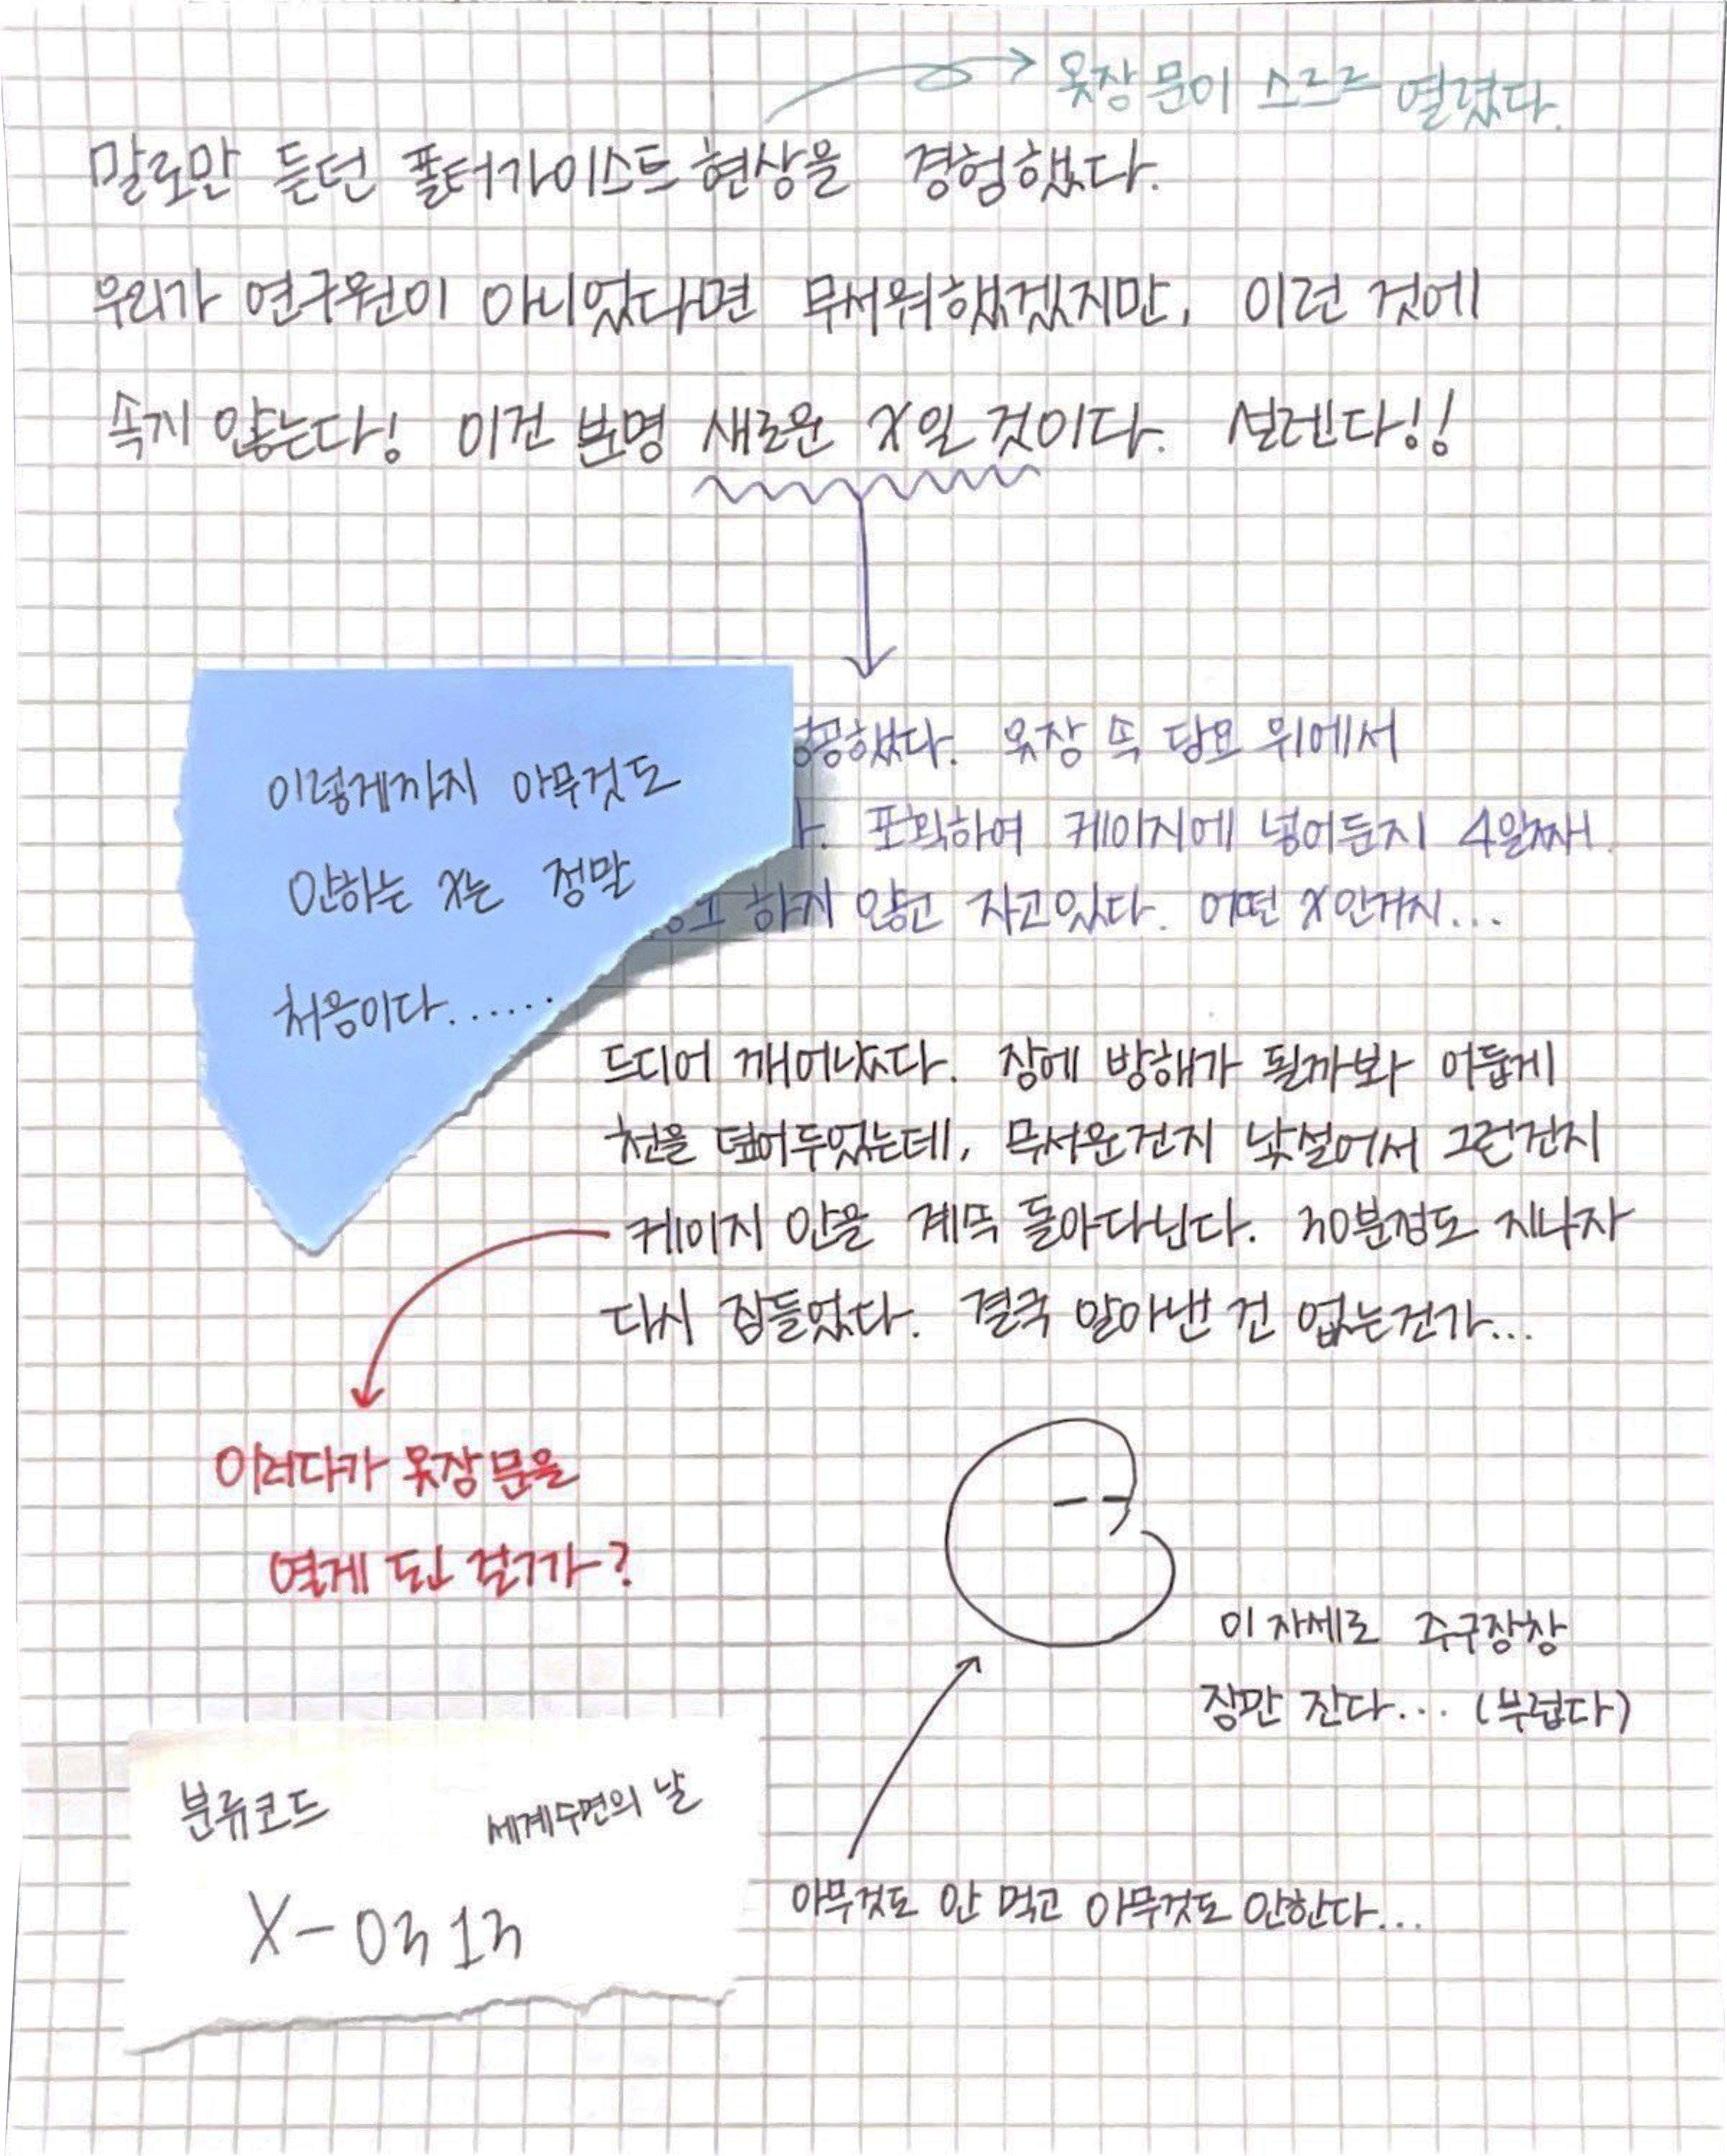 옷장 문이 스르르 열렸다.
말로만 듣던 폴터가이스트 현상을 경험했다.
우리가 연구원이 아니었다면 무서워했겠지만, 이런 것에
속지 않는다! 이건 분명 새로운 X일 것이다. 설렌다!!
옷장 속 담요 위에서
포획하여 케이지에 넣어둔지 4일째.
하지 않고 자고있다. 어떤 X인거지...
이렇게까지 아무것도
안하는 X는 정말
처음이다......
드디어 깨어났다. 잠에 방해가 될까봐 어둡게
천을 덮어두었는데, 무서운건지 낯설어서 그런건지
케이지 안을 계속 돌아다닌다. 30분정도 지나자
다시 잠들었다. 결국 알아낸 건 없는건가...
이러다가 옷장 문을
열게 된 걸까?
이 자세로 주구장창
잠만 잔다... (부럽다)
아무것도 안 먹고 아무것도 안한다...
분류코드 세계수면의 날
X-0313